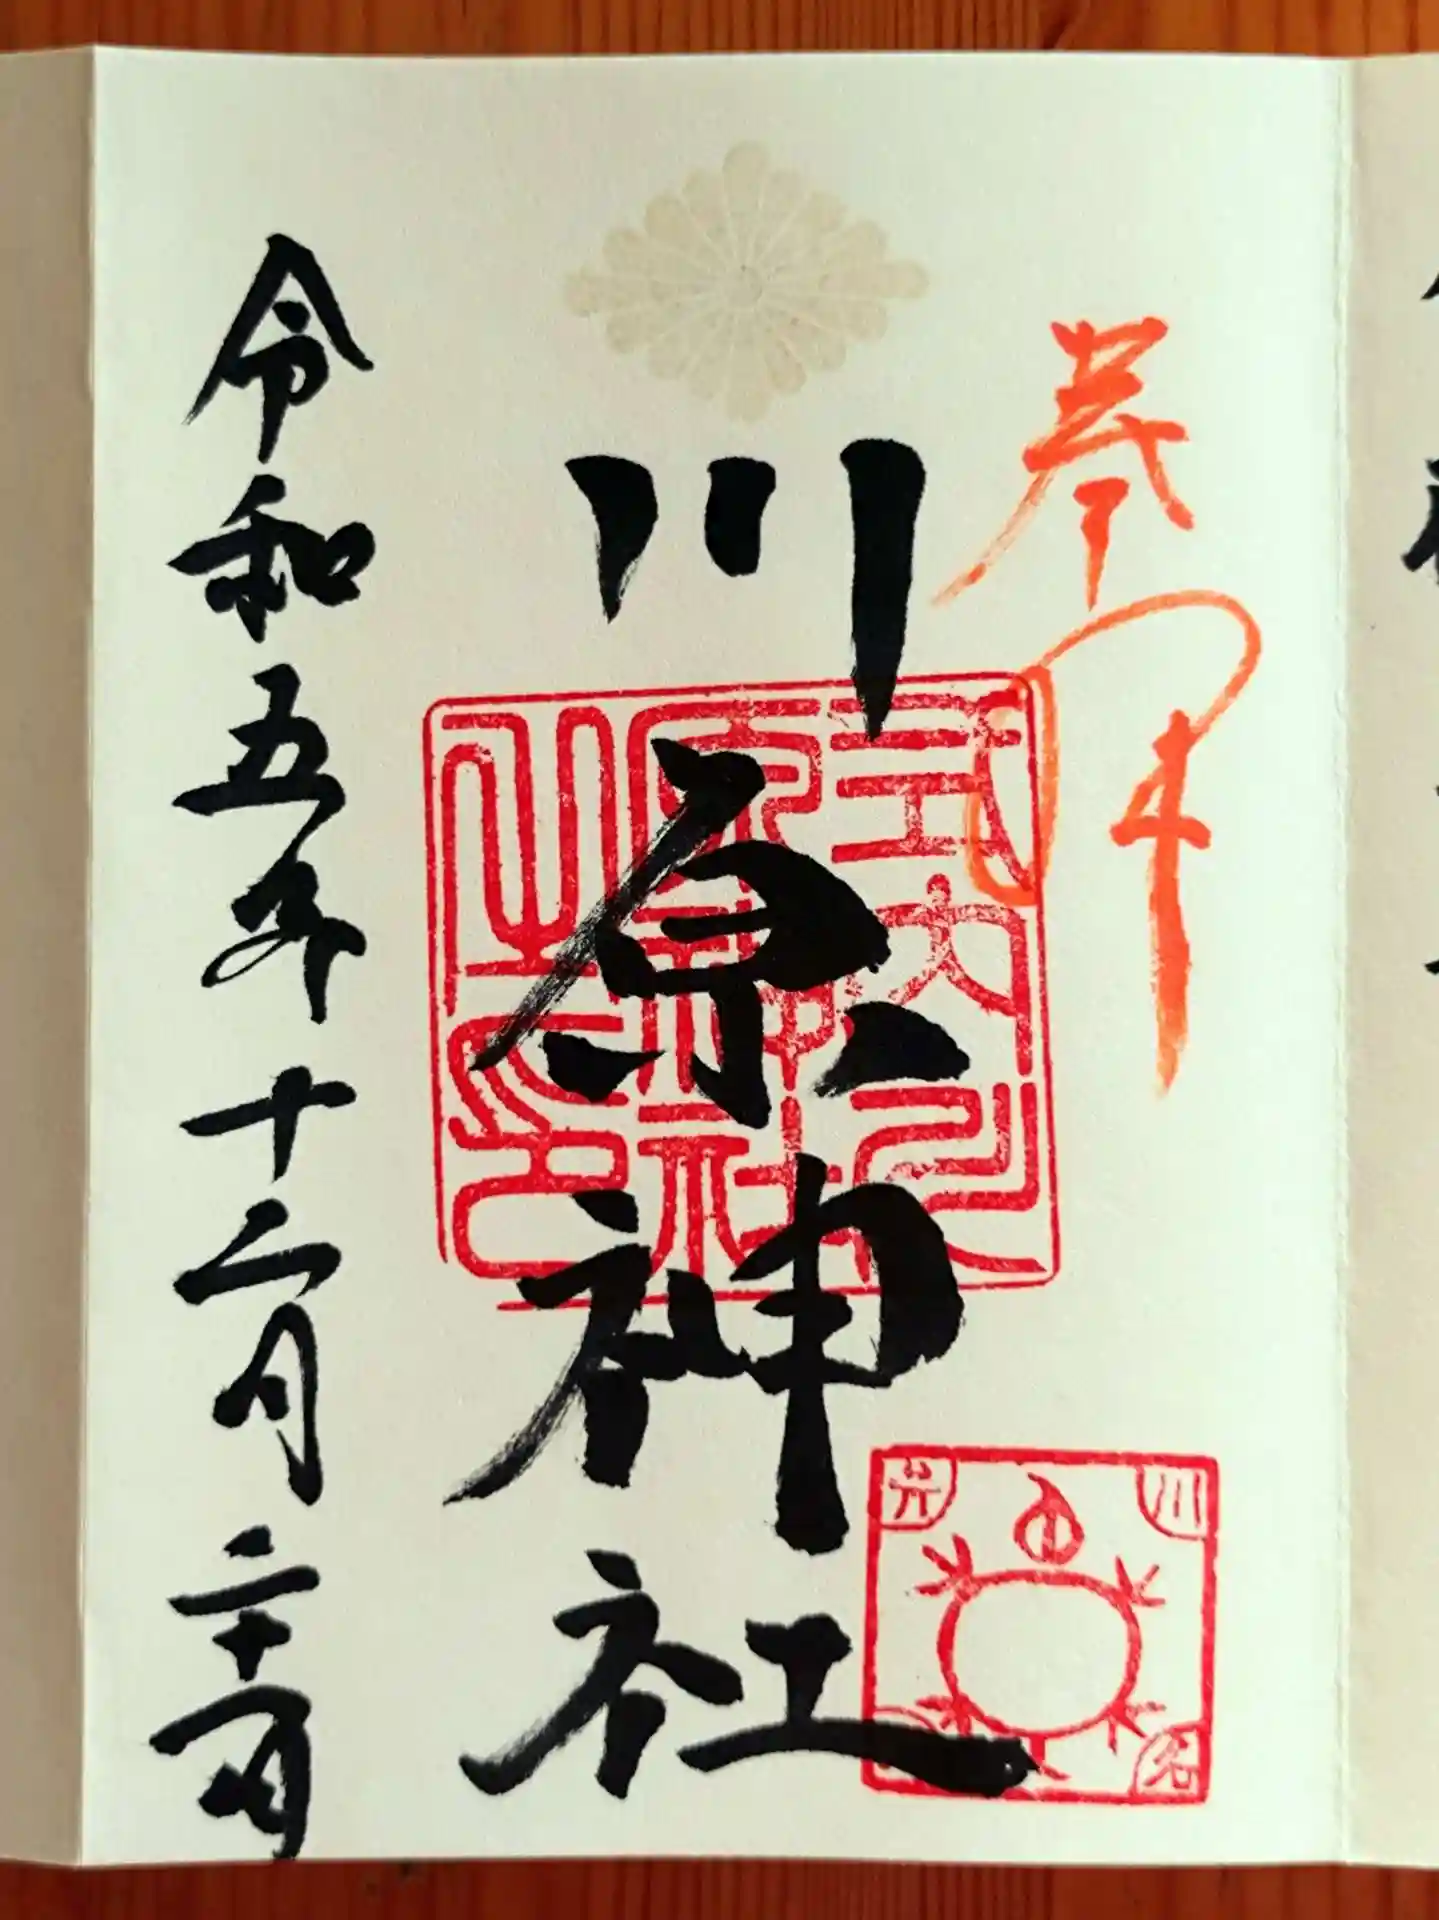 奉拝
川原神社
令和五年十二月二十一日
式内川
原神社
之印
川名
弁